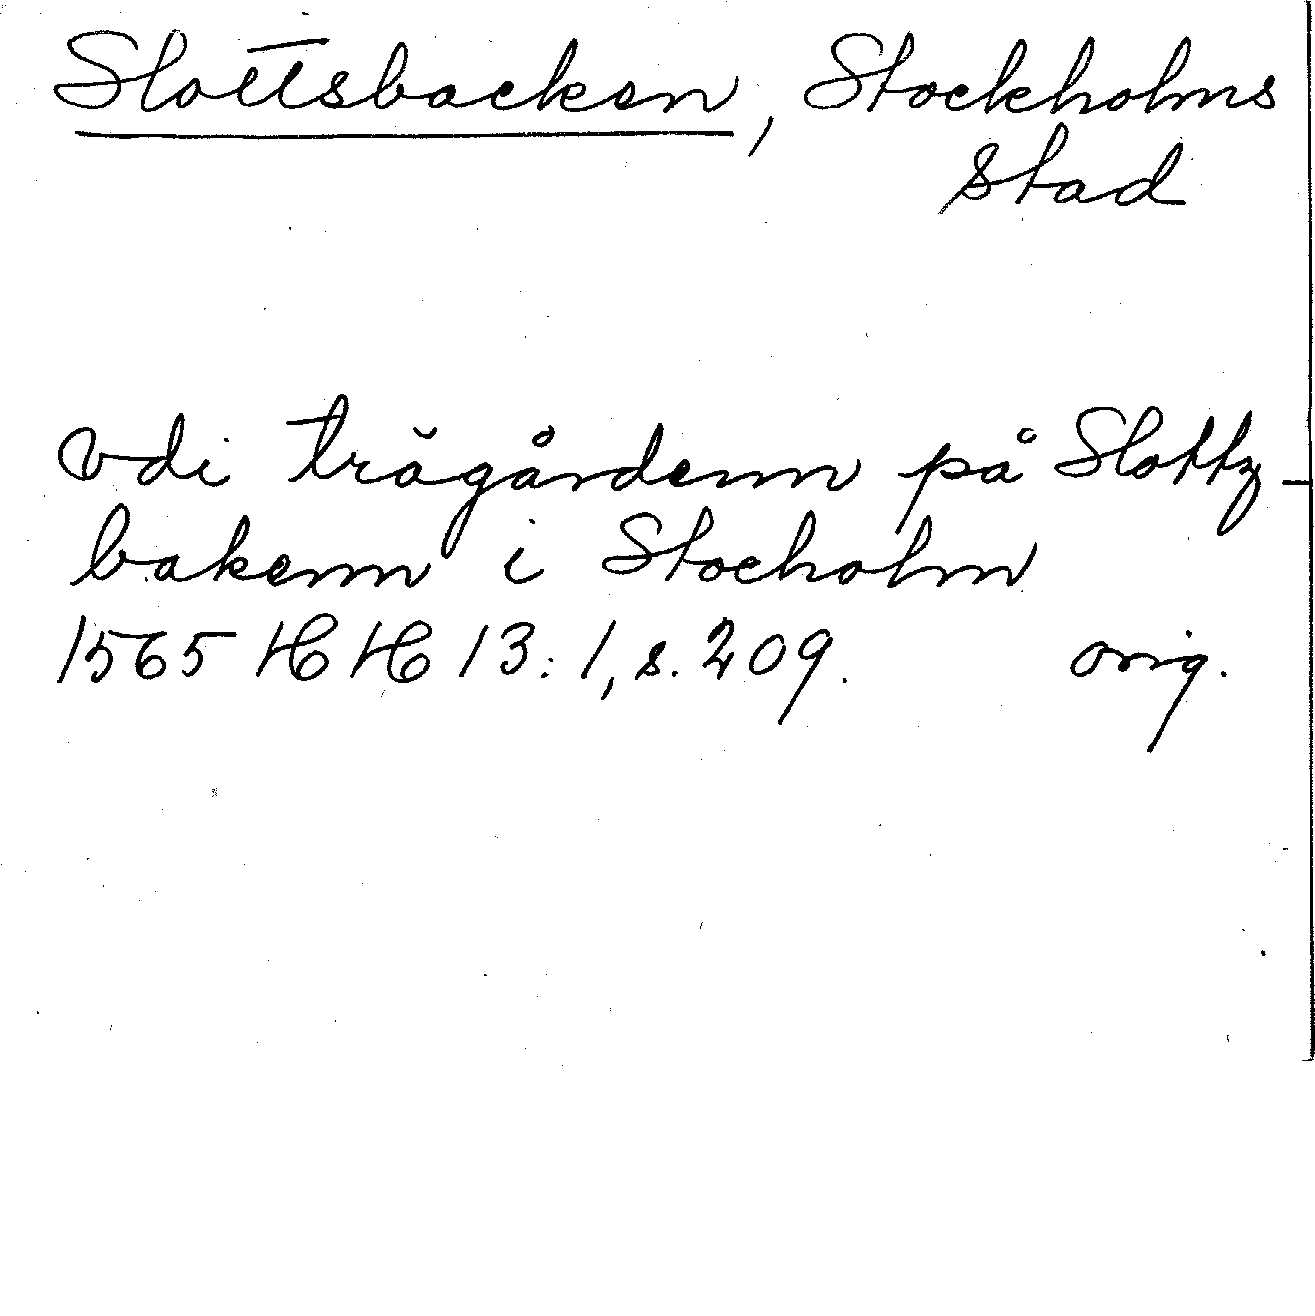 Slottsbacken, Stockholms
stad
vdi trägårdenn på Slottz-
bakenn i Stocholm
1565 HH 13:1, s. 209. orig.